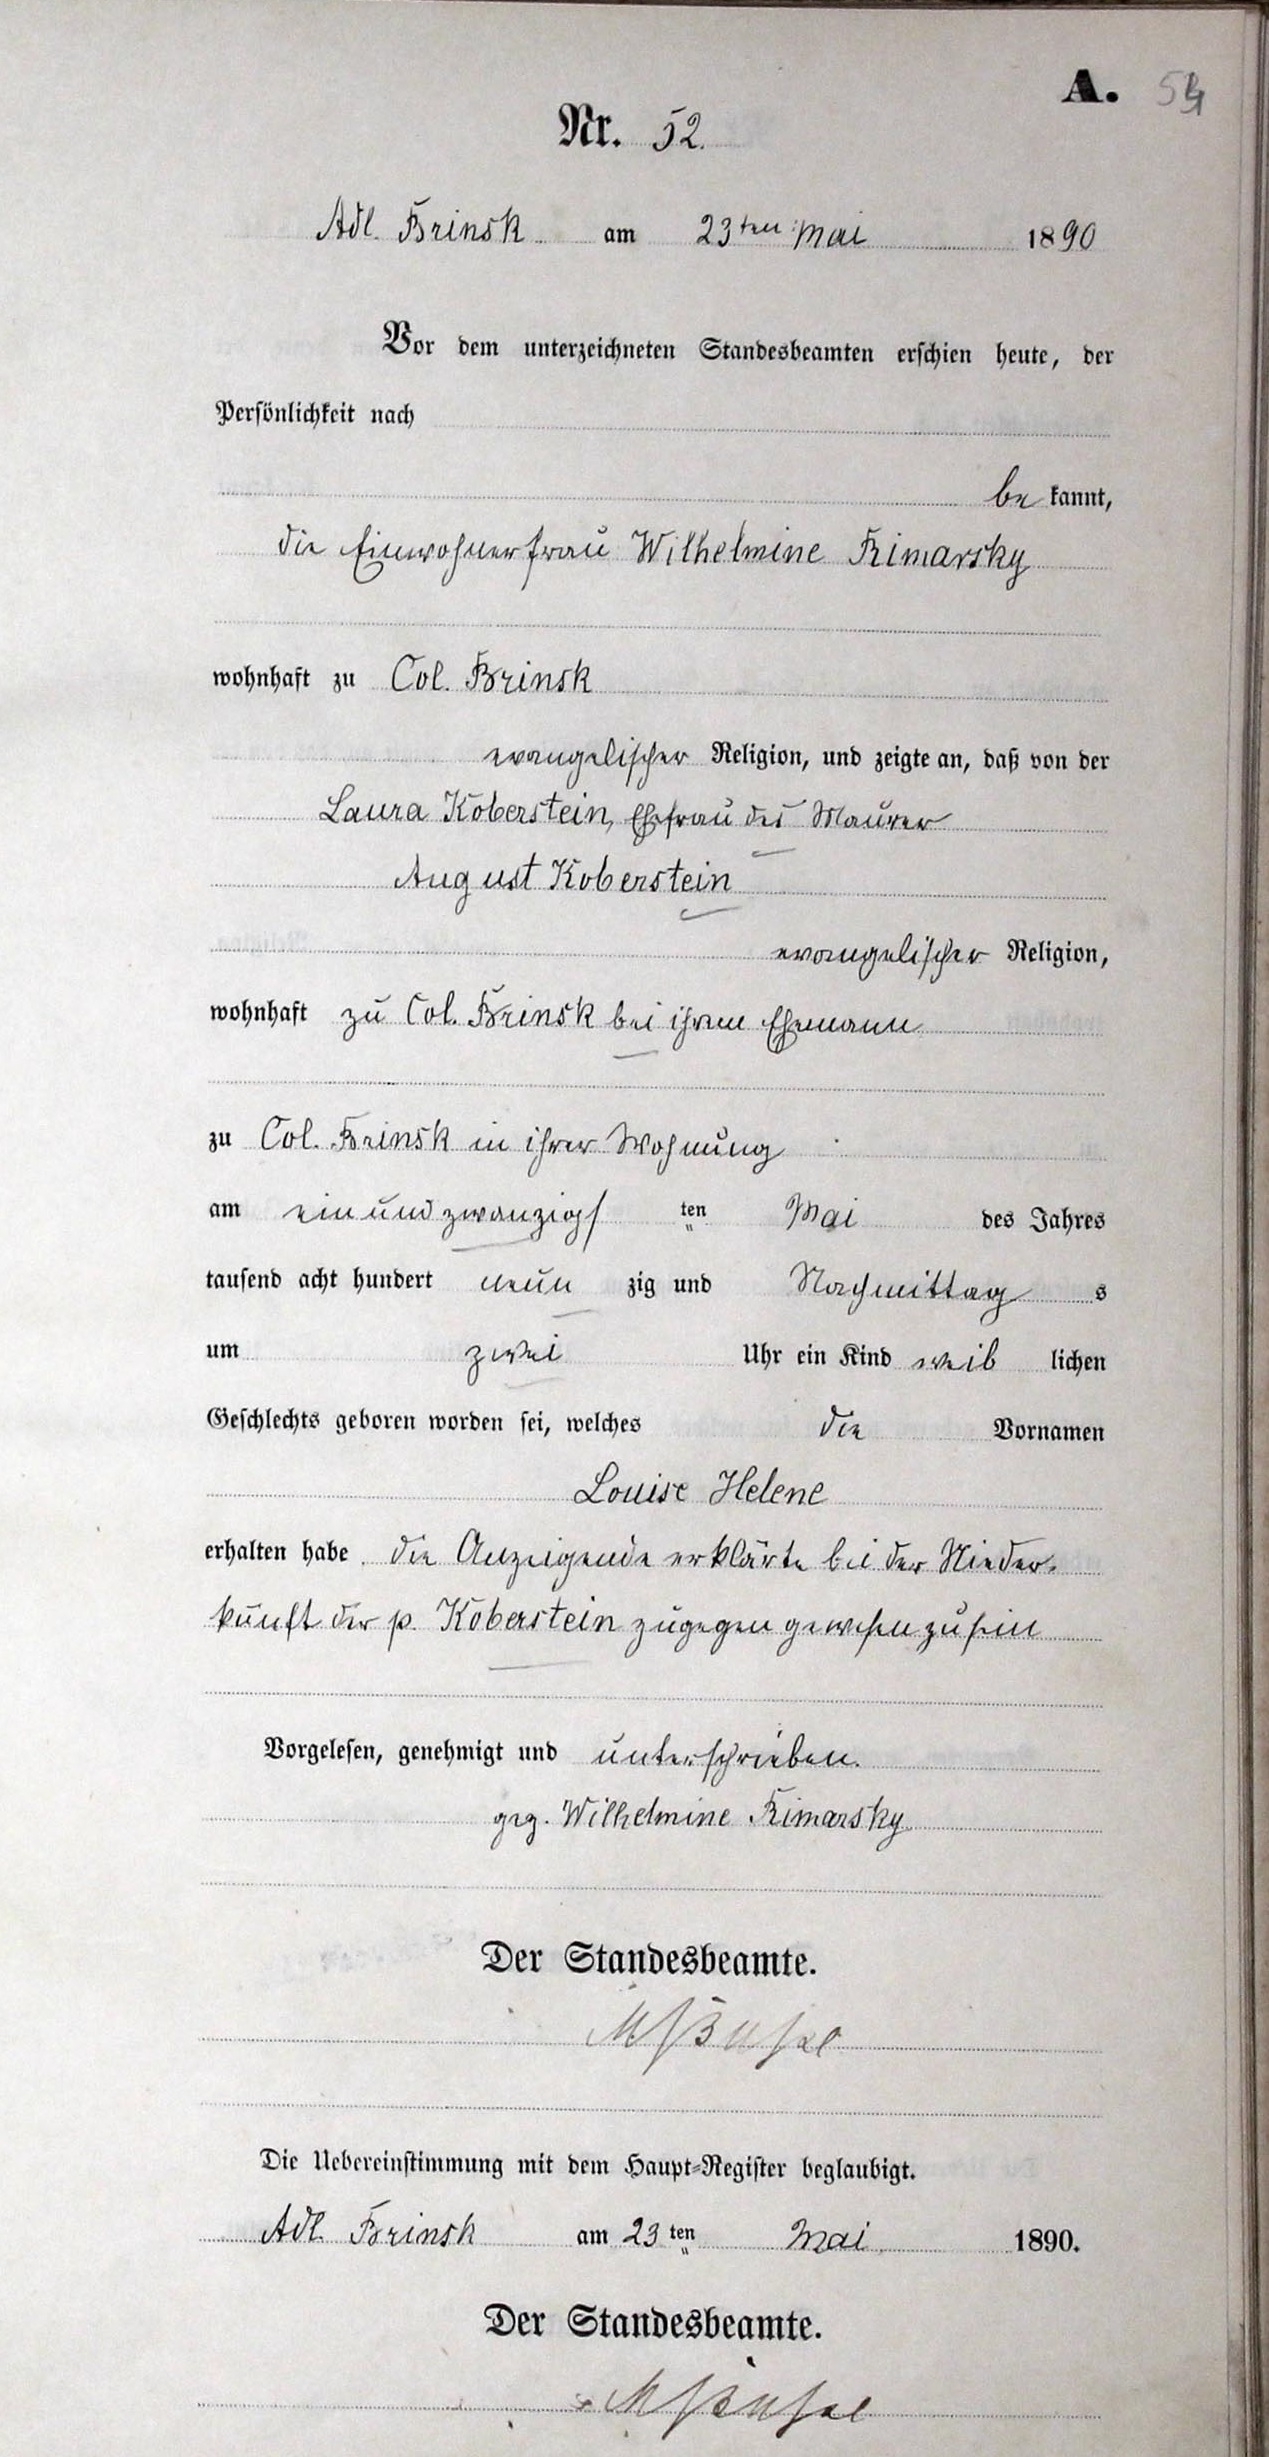 A.
Nr. 52.
Adl. Brinsk am 23ten Mai 1890
Vor dem unterzeichneten Standesbeamten erschien heute, der
Persönlichkeit nach
be kannt,
die Einwohnerfrau Wilhelmine Rimarsky
wohnhaft zu Col. Brinsk
evangelischer Religion, und zeigte an, daß von der
Laura Koberstein, Ehefrau des Maurer
August Koberstein
evangelischer Religion,
wohnhaft zu Col. Brinsk bei ihrem Ehemann
zu Col. Brinsk in ihrer Wohnung
am ein und zwanzigs ten Mai des Jahres
tausend acht hundert neun zig und Nachmittag s
um zwei Uhr ein Kind weib lichen
Geschlechts geboren worden sei, welches die Vornamen
Louise Helene
erhalten habe. die Anzeigende erklärte bei der Nieder-
kunft der p. Koberstein zugegen gewesen zu sein
Vorgelesen, genehmigt und unterschrieben.
gez. Wilhelmine Rimarsky
Der Standesbeamte.
Die Uebereinstimmung mit dem Haupt-Register beglaubigt.
Adl. Brinsk am 23 ten Mai 1890.
Der Standesbeamte.